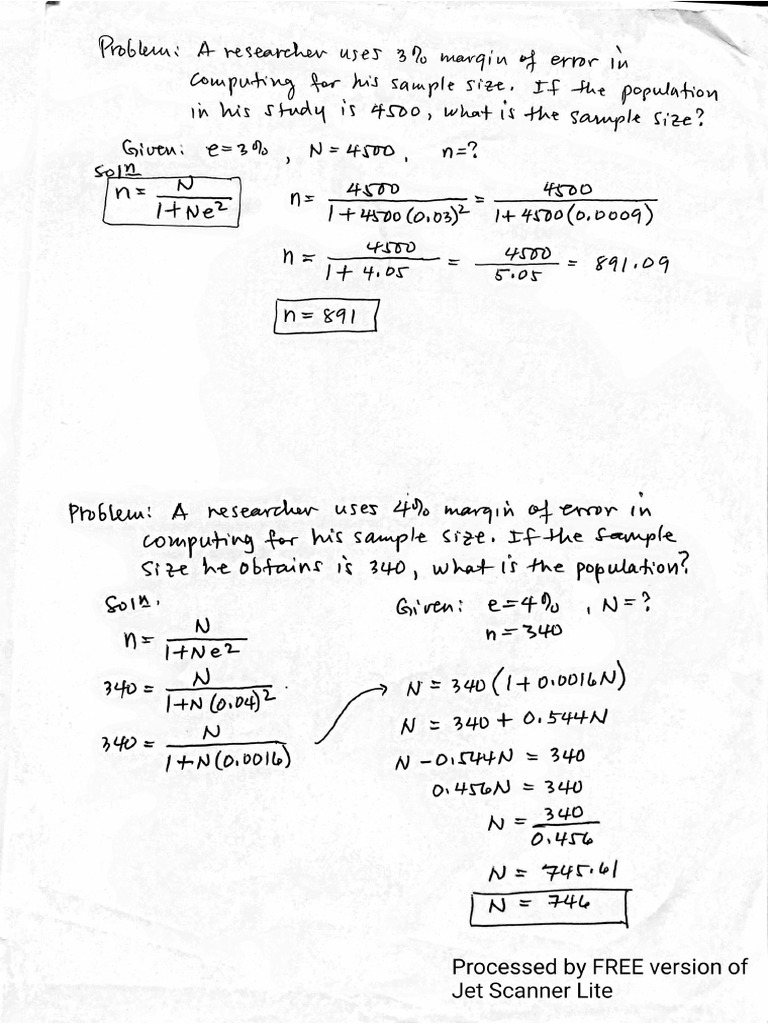 Problem: A researcher uses 3% margin of error in
computing for his sample size. If the population
in his study is 4500, what is the sample size?
Given: e=3%, N=4500, n=?
Soln
n= N/1+Ne² n= 4500/1+4500(0.03)² = 4500/1+4500(0.0009)
n= 4500/1+4.05 = 4500/5.05 = 891.09
n=891
Problem: A researcher uses 4% margin of error in
computing for his sample size. If the sample
size he obtains is 340, what is the population?
Soln. Given: e=4%, N=?
n=340
n= N/1+Ne²
340 = N/1+N(0.04)²
340 = N/1+N(0.0016)
N = 340(1+0.0016N)
N = 340+0.544N
N-0.544N = 340
0.456N = 340
N = 340/0.456
N = 745.61
N = 746
Processed by FREE version of
Jet Scanner Lite